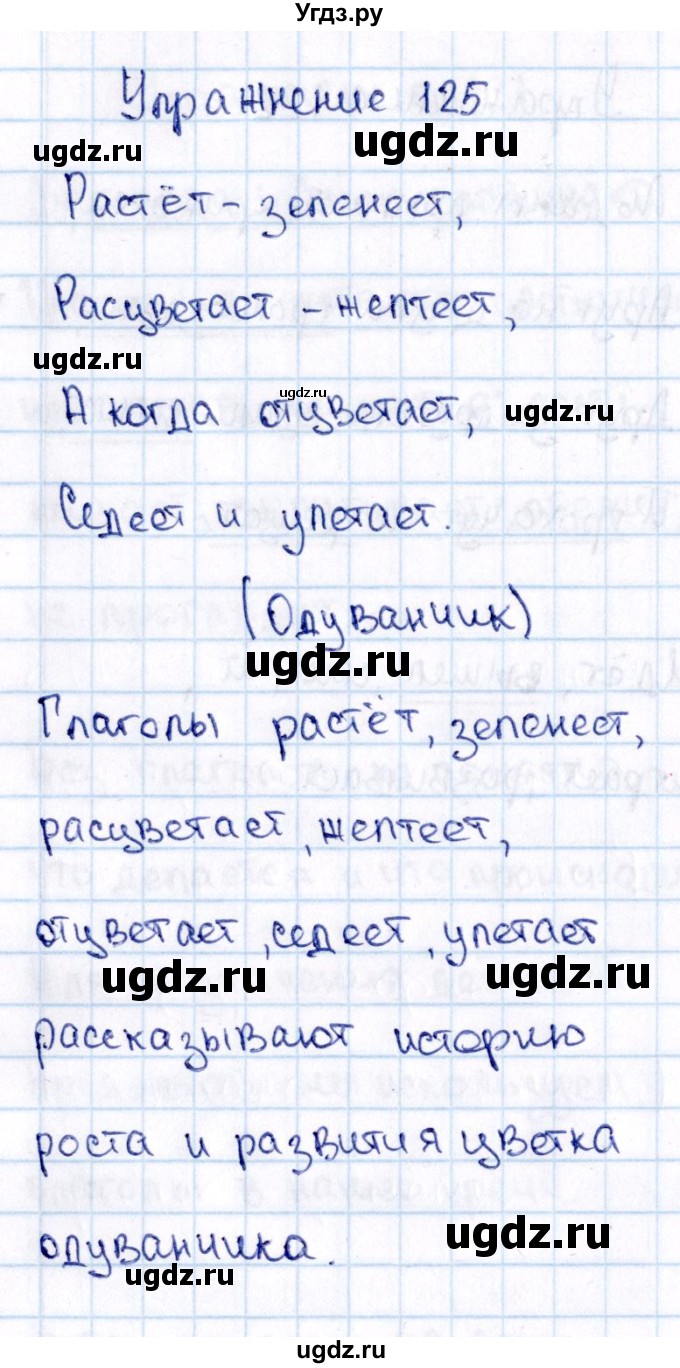 Угдз.ру
Упражнение 125
ugdz.ru
ugdz.ru
Растёт - зеленеет,
Расцветает - желтеет,
ugdz.ru
ugdz.ru
А когда отцветает,
ugdz.ru
Седеет и улетает.
(Одуванчик)
ugdz.ru
Глаголы растёт, зеленеет,
расцветает, желтеет,
отцветает, седеет, улетает
ugdz.ru
ugdz.ru
рассказывают историю
роста и развития цветка
одуванчика.
ugdz.ru
ugdz.ru
ugdz.ru